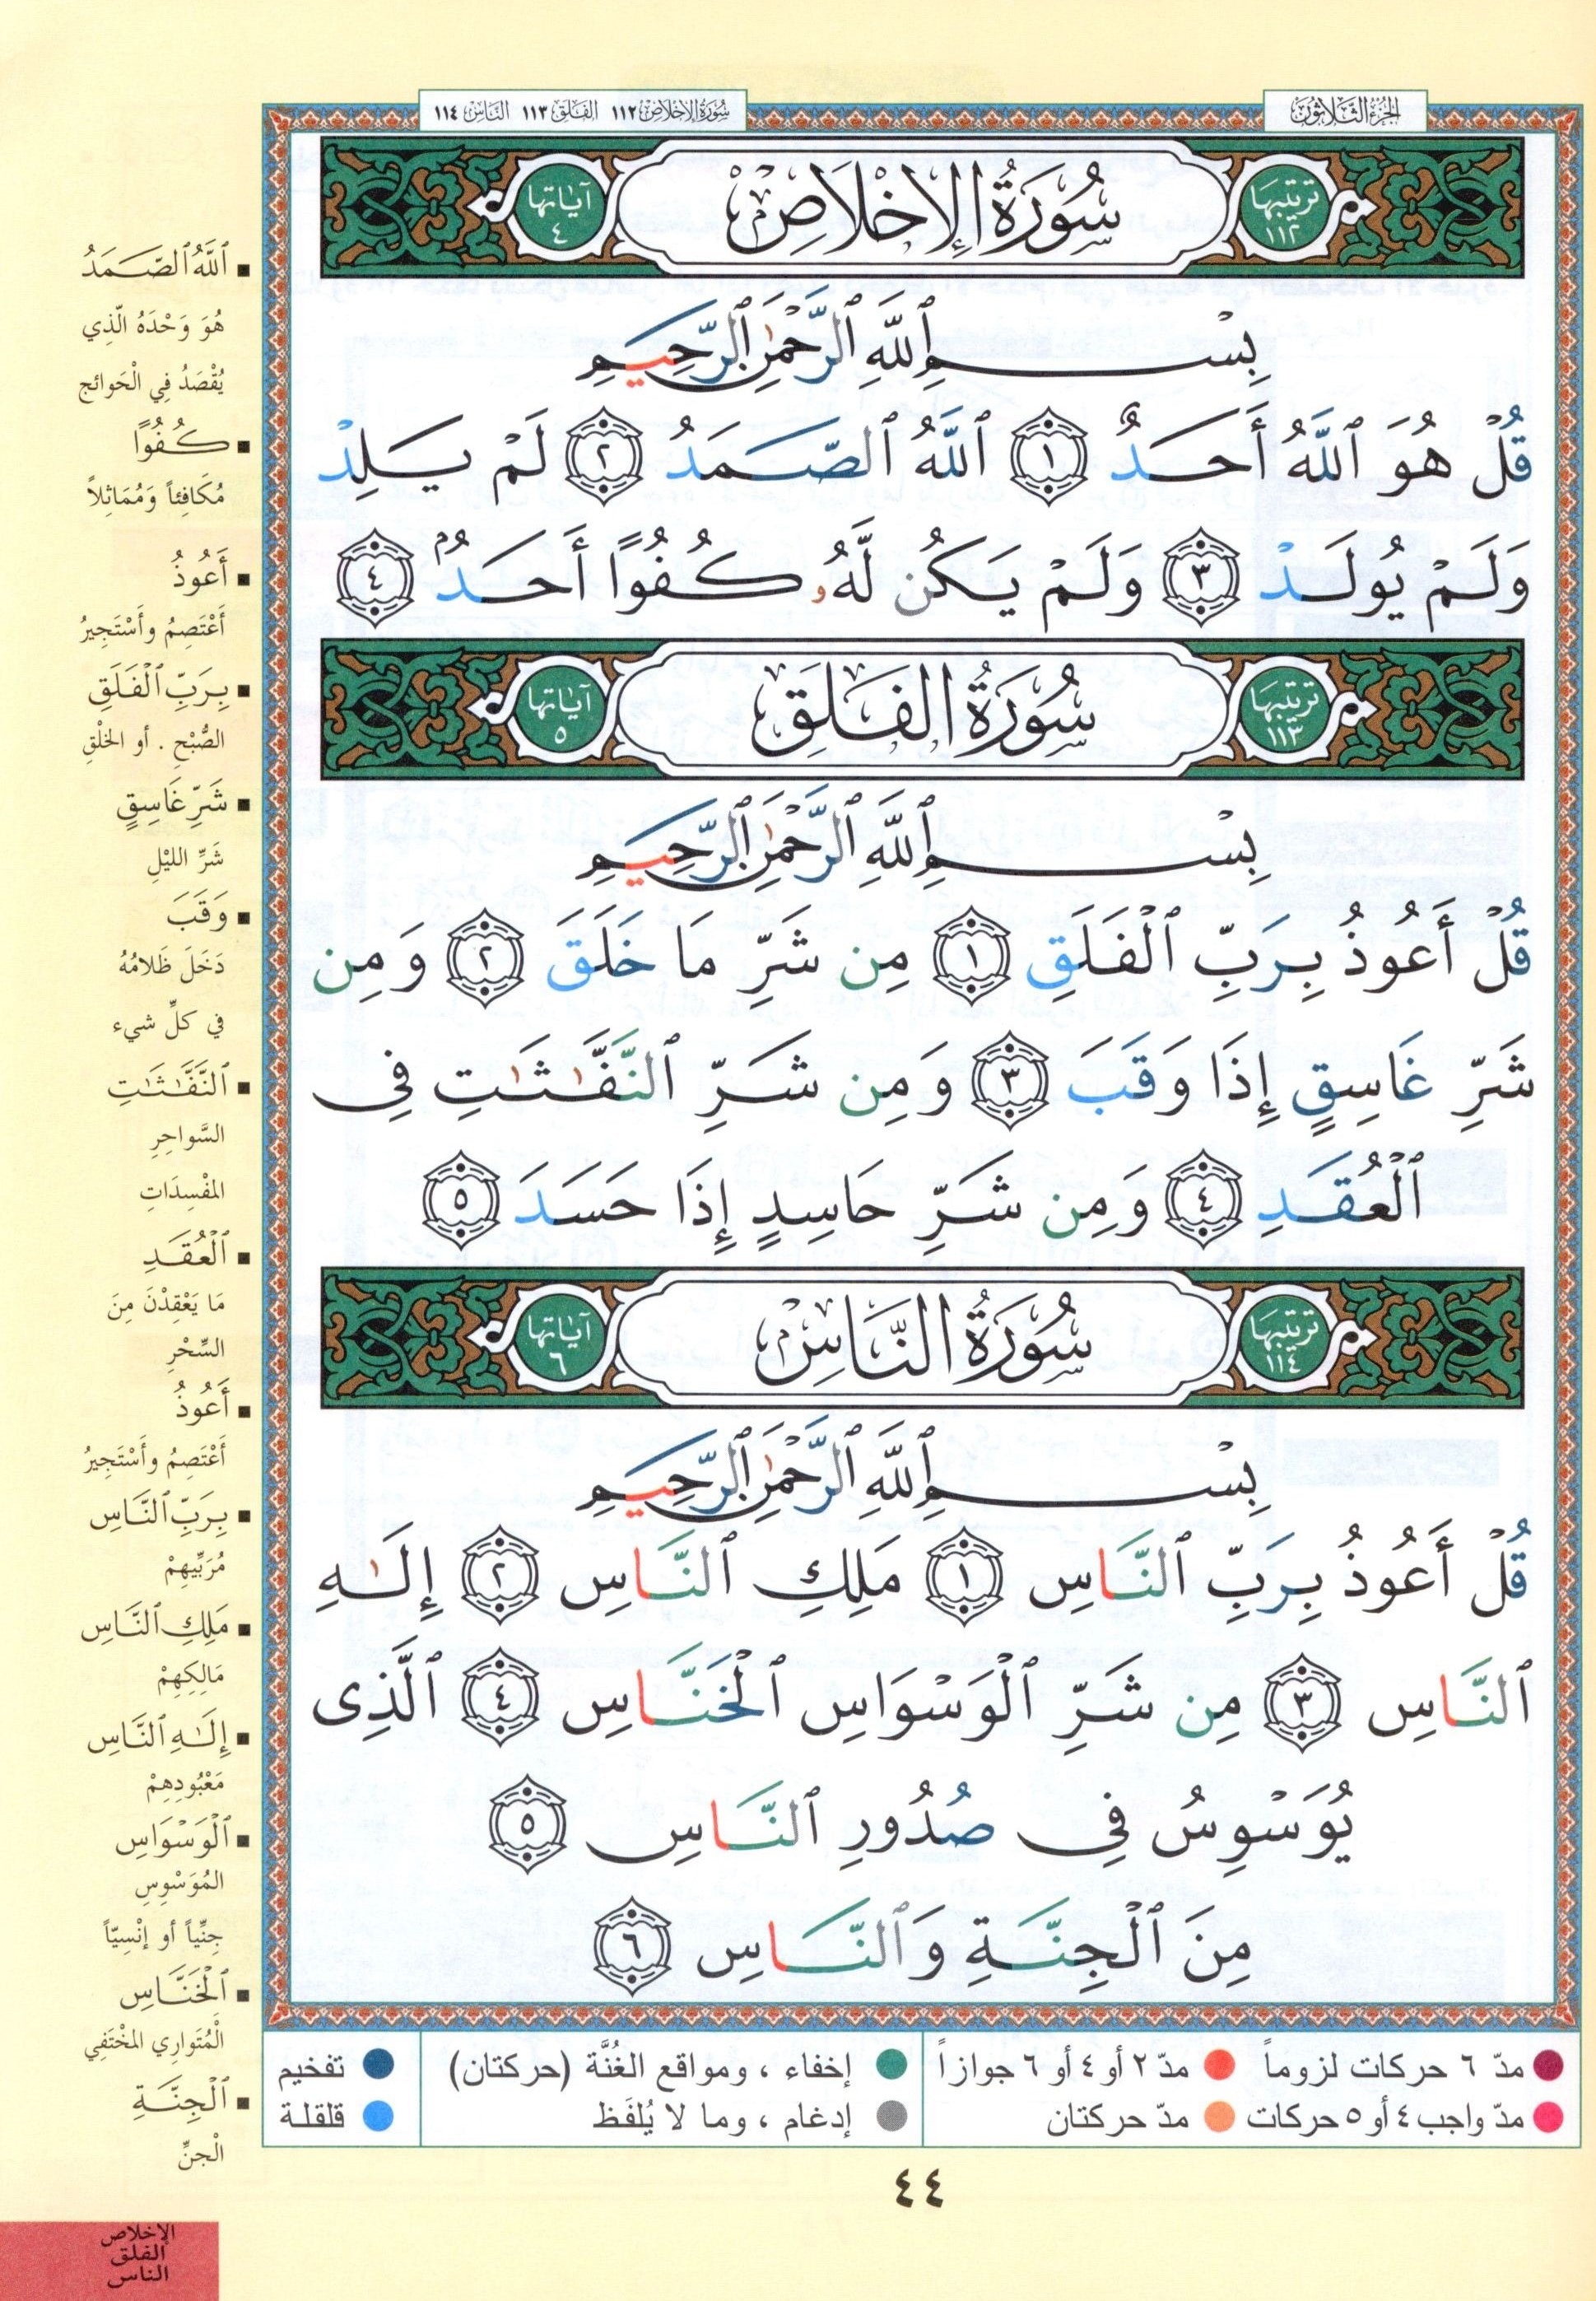 الجزء الثلاثون
سورة الإخلاص ١١٢ الفلق ١١٣ الناس ١١٤
ترتيبها ١١٢
سُورَةُ الإِخْلَاصِ
آياتها ٤
بِسْمِ ٱللَّهِ ٱلرَّحْمَٰنِ ٱلرَّحِيمِ
قُلْ هُوَ ٱللَّهُ أَحَدٌ ١ ٱللَّهُ ٱلصَّمَدُ ٢ لَمْ يَلِدْ
وَلَمْ يُولَدْ ٣ وَلَمْ يَكُن لَّهُۥ كُفُوًا أَحَدٌۢ ٤
ترتيبها ١١٣
سُورَةُ الفَلَقِ
آياتها ٥
بِسْمِ ٱللَّهِ ٱلرَّحْمَٰنِ ٱلرَّحِيمِ
قُلْ أَعُوذُ بِرَبِّ ٱلْفَلَقِ ١ مِن شَرِّ مَا خَلَقَ ٢ وَمِن
شَرِّ غَاسِقٍ إِذَا وَقَبَ ٣ وَمِن شَرِّ ٱلنَّفَّٰثَٰتِ فِى
ٱلْعُقَدِ ٤ وَمِن شَرِّ حَاسِدٍ إِذَا حَسَدَ ٥
ترتيبها ١١٤
سُورَةُ النَّاسِ
آياتها ٦
بِسْمِ ٱللَّهِ ٱلرَّحْمَٰنِ ٱلرَّحِيمِ
قُلْ أَعُوذُ بِرَبِّ ٱلنَّاسِ ١ مَلِكِ ٱلنَّاسِ ٢ إِلَٰهِ
ٱلنَّاسِ ٣ مِن شَرِّ ٱلْوَسْوَاسِ ٱلْخَنَّاسِ ٤ ٱلَّذِى
يُوَسْوِسُ فِى صُدُورِ ٱلنَّاسِ ٥
مِنَ ٱلْجِنَّةِ وَٱلنَّاسِ ٦
▪ ٱللَّهُ ٱلصَّمَدُ
هُوَ وَحْدَهُ الَّذِي
يُقْصَدُ فِي الْحَوائج
▪ كُفُوًا
مُكَافِئاً وَمُمَاثِلاً
▪ أَعُوذُ
أَعْتَصِمُ وأَسْتَجِيرُ
▪ بِرَبِّ ٱلْفَلَقِ
الصُّبْحِ . أو الخَلْقِ
▪ شَرِّ غَاسِقٍ
شَرِّ الليْلِ
▪ وَقَبَ
دَخَلَ ظَلامُهُ
في كلِّ شيء
▪ ٱلنَّفَّٰثَٰتِ
السَّواحِرِ
المفْسِدَاتِ
▪ ٱلْعُقَدِ
مَا يَعْقِدْنَ مِنَ
السِّحْرِ
▪ أَعُوذُ
أَعْتَصِمُ وأَسْتَجِيرُ
▪ بِرَبِّ ٱلنَّاسِ
مُرَبِّيهِمْ
▪ مَلِكِ ٱلنَّاسِ
مَالِكِهِمْ
▪ إِلَٰهِ ٱلنَّاسِ
مَعْبُودِهِمْ
▪ ٱلْوَسْوَاسِ
المُوَسْوِسِ
جِنِّياً أو إنْسِيّاً
▪ ٱلْخَنَّاسِ
الْمُتَوارِي المخْتَفِي
▪ ٱلْجِنَّةِ
الْجنِّ
مدّ ٦ حركات لزوماً
مدّ ٢ أو ٤ أو ٦ جوازاً
إخفاء ، ومواقع الغُنَّة (حركتان)
تفخيم
مدّ واجب ٤ أو ٥ حركات
مدّ حركتان
إدغام ، وما لا يُلفَظ
قلقلة
٤٤
الإخلاص
الفلق
الناس